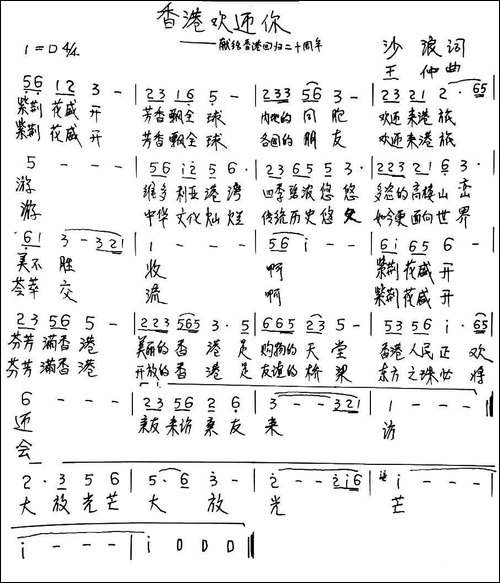 香港欢迎你
——献给香港回归二十周年
1=D 4/4
沙浪词
王仲曲
56 12 3 - | 23 16 5 - | 03 56 3 - | 23 21 2 · 65
紫荆花盛开 芳香飘全球 内地的同胞 欢迎来港旅
紫荆花盛开 芳香飘全球 各国的朋友 欢迎来港旅
5 - - - | 56 i2 5 6 · | 23 65 5 3 · | 223 21 6 3 ·
游 维多利亚港湾 四季碧波悠悠 多姿的高楼山峦
游 中华文化灿烂 传统历史悠久 如今更面向世界
61 3 - 321 | 1 - - - | 56 i - - | 6i 65 6 -
美不胜 收 啊 紫荆花盛开
荟萃交 流 啊 紫荆花盛开
23 56 5 - | 223 565 3 · 5 | 665 23 5 - | 53 56 i · 65
芬芳满香港 美丽的香港是 购物的天堂 香港人民正欢
芬芳满香港 开放的香港是 友谊的桥梁 东方之珠必将
6 - - - | 23 56 2 6 | 3 - - 321 | 1 - - - :||
迎 亲友来访亲友来 访
会
2 · 3 5 6 | 5 · 6 3 - | 2 - - 2i6 | i - - -
大放光芒 大放 光 芒
i - - - | i 0 0 0 ||